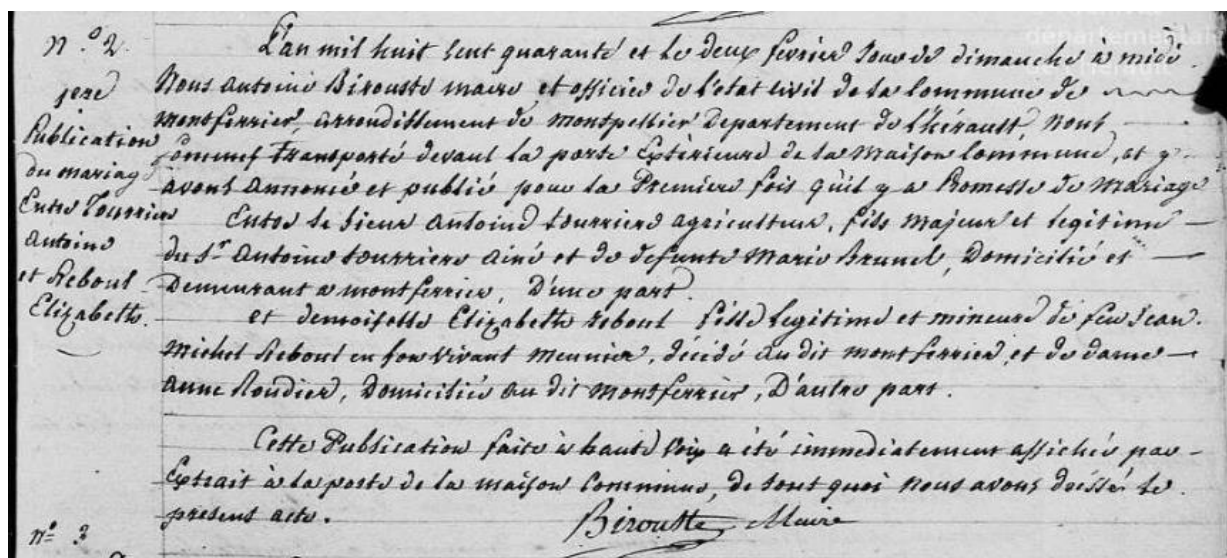 n.° 2.
1ere
Publication
du mariage
Entre Tourrier
Antoine
et Reboul
Elizabeth.
L'an mil huit cent quarante et le deux fevrier jour de dimanche à midi.
Nous antoine Birouste maire et officier de l'etat civil de la Commune de
montferrier, arrondissement de montpellier departement de l'hérault, nous
sommes transporté devant la porte Extérieure de la Maison Commune, et y
avons annoncé et publié pour la Premiere fois qu'il y a Promesse de Mariage
Entre le sieur Antoine tourriere agriculteur, fils majeur et legitime
du Sr Antoine tourriere ainé et de defunte Marie Brunel, Domicilié et
Demeurant a montferrier, D'une part.
et demoiselle Elizabeth reboul fille legitime et mineure de feu Jean
Michel Reboul en son vivant meunier, décédé au dit montferrier, et de dame
anne Roudier, Domiciliée au dit Montferrier, D'autre part.
Cette Publication faite à haute voix a été immediatement affichée par
Extrait à la porte de la maison Commune, de tout quoi Nous avons dressé le
présent acte.
Birouste Maire
n° 3
départementales
de l'Hérault